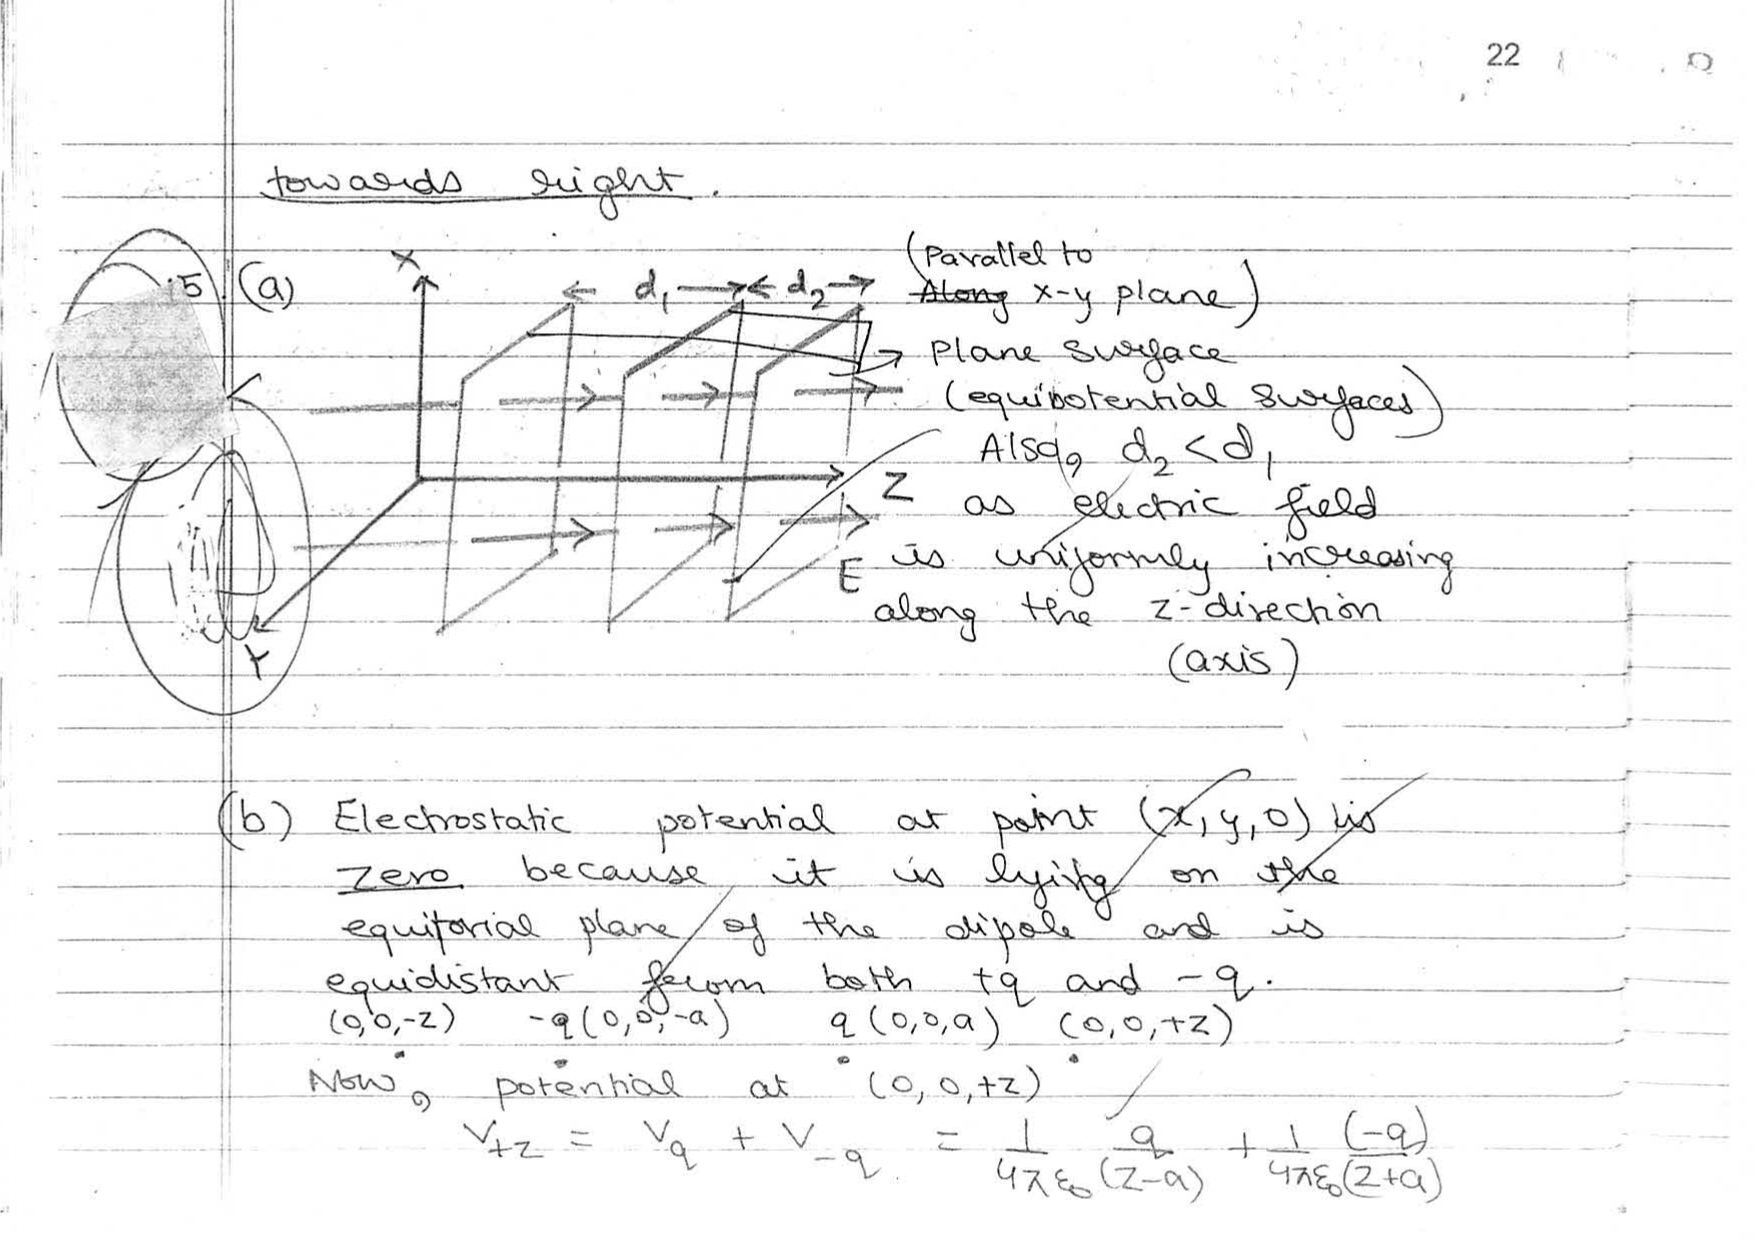 22
towards right.
.5 (a)
X
d₁
d₂
(Parallel to
~~Along~~ x-y plane)
Plane surface
(equipotential surfaces)
Also, d₂ < d₁
Z
as electric field
E
is uniformly increasing
along the z-direction
(axis)
Y
(b) Electrostatic potential at point (x, y, 0) is
zero because it is lying on the
equitorial plane of the dipole and is
equidistant from both +q and -q.
(0,0,-z) -q(0,0,-a) q(0,0,a) (0,0,+z)
Now, potential at (0,0,+z)
V₊z = Vq + V₋q = 1/4πε₀ q/(z-a) + 1/4πε₀ (-q)/(z+a)